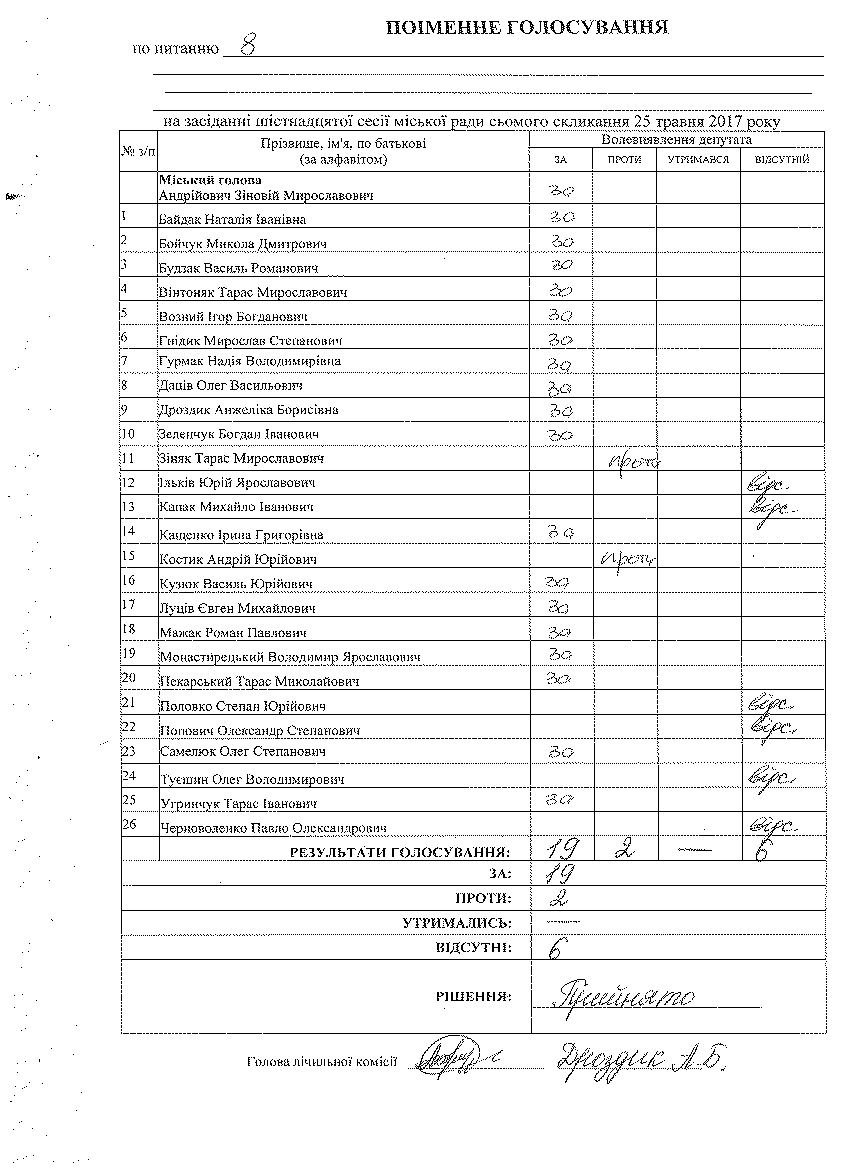 ПОІМЕННЕ ГОЛОСУВАННЯ
по питанню 8
на засіданні шістнадцятої сесії міської ради сьомого скликання 25 травня 2017 року
№ з/п Прізвище, ім'я, по батькові (за алфавітом) Волевиявлення депутата
ЗА ПРОТИ УТРИМАВСЯ ВІДСУТНІЙ
Міський голова
Андрійович Зіновій Мирославович за
1 Байдак Наталія Іванівна за
2 Бойчук Микола Дмитрович за
3 Будзак Василь Романович за
4 Вінтоняк Тарас Мирославович за
5 Возний Ігор Богданович за
6 Гнідик Мирослав Степанович за
7 Гурмак Надія Володимирівна за
8 Даців Олег Васильович за
9 Дроздик Анжеліка Борисівна за
10 Зеленчук Богдан Іванович за
11 Зіняк Тарас Мирославович проти
12 Ільків Юрій Ярославович відс.
13 Капак Михайло Іванович відс.
14 Кащенко Ірина Григорівна за
15 Костик Андрій Юрійович проти
16 Кузюк Василь Юрійович за
17 Луців Євген Михайлович за
18 Мажак Роман Павлович за
19 Монастирецький Володимир Ярославович за
20 Пекарський Тарас Миколайович за
21 Половко Степан Юрійович відс.
22 Попович Олександр Степанович відс.
23 Самелюк Олег Степанович за
24 Туєшин Олег Володимирович відс.
25 Угринчук Тарас Іванович за
26 Черноволенко Павло Олександрович відс.
РЕЗУЛЬТАТИ ГОЛОСУВАННЯ: 19 2 — 6
ЗА: 19
ПРОТИ: 2
УТРИМАЛИСЬ: —
ВІДСУТНІ: 6
РІШЕННЯ: Прийнято
Голова лічильної комісії Дроздик А.Б.